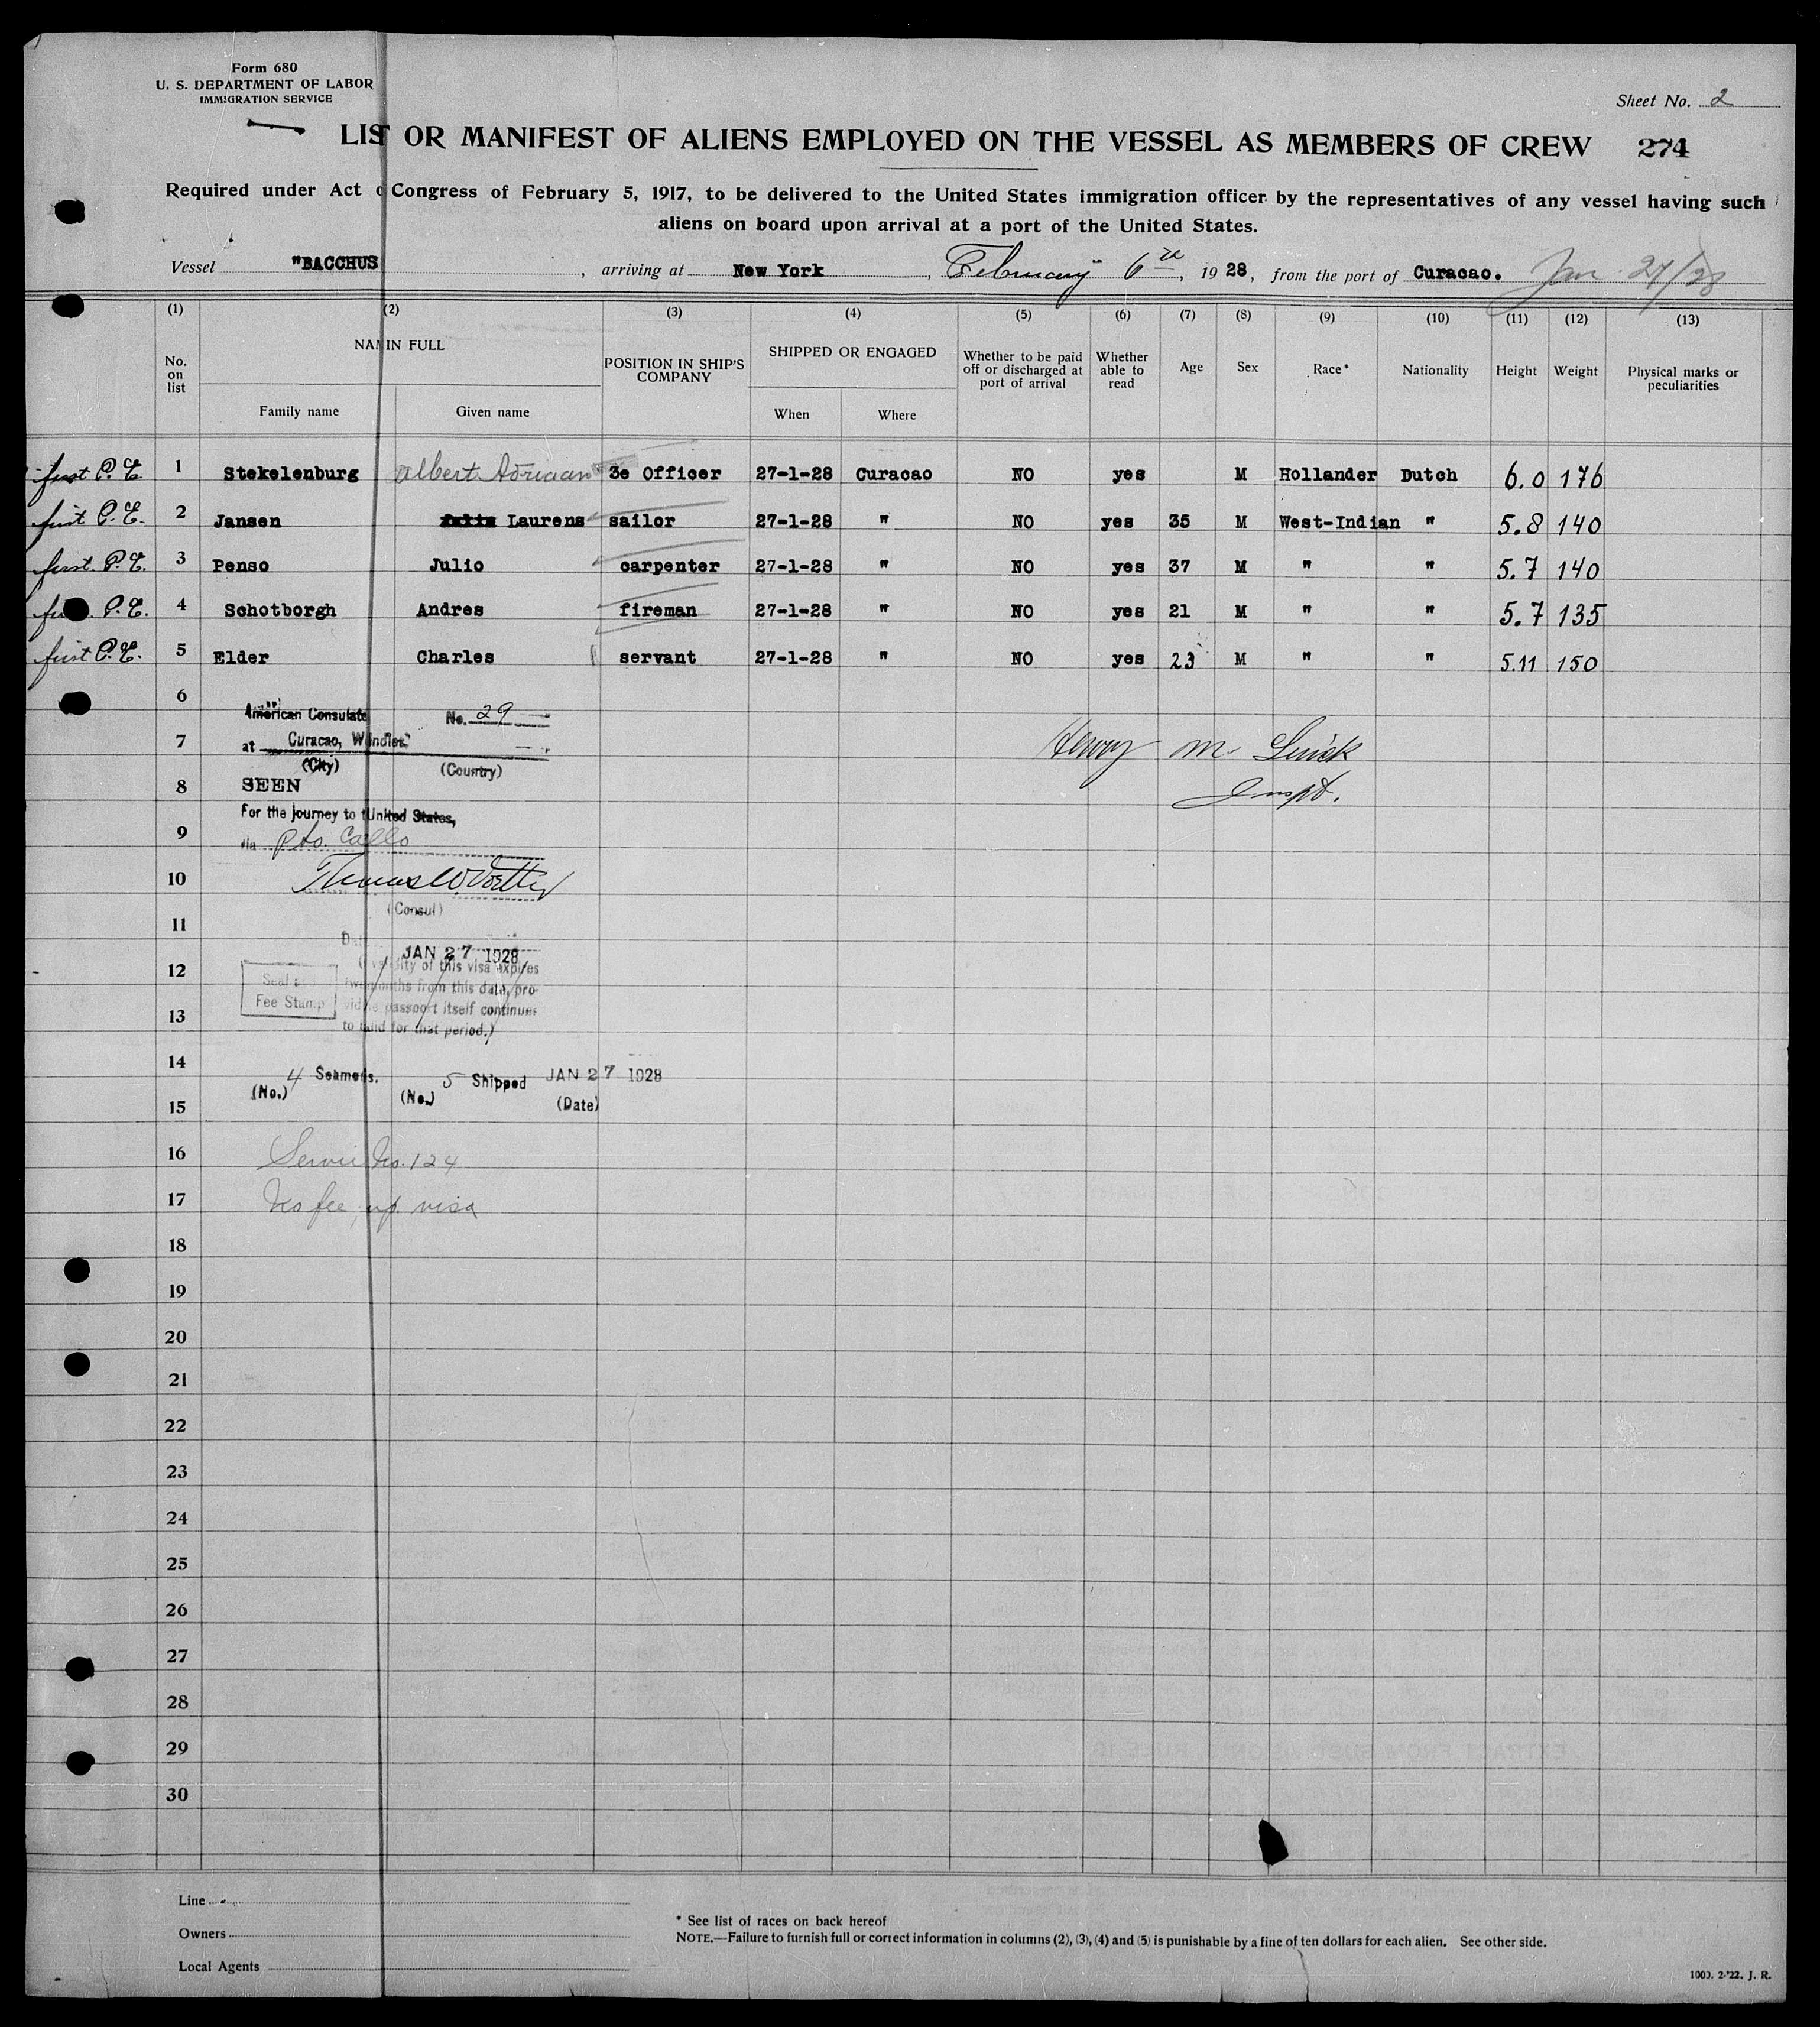 Form 680
U. S. DEPARTMENT OF LABOR
IMMIGRATION SERVICE
Sheet No. 2
LIST OR MANIFEST OF ALIENS EMPLOYED ON THE VESSEL AS MEMBERS OF CREW 274
Required under Act o Congress of February 5, 1917, to be delivered to the United States immigration officer by the representatives of any vessel having such
aliens on board upon arrival at a port of the United States.
Vessel "BACCHUS , arriving at New York , February 6th, 1928, from the port of Curacao. Jan 27/28
(1) (2) (3) (4) (5) (6) (7) (8) (9) (10) (11) (12) (13)
No. on list NAM IN FULL POSITION IN SHIP'S COMPANY SHIPPED OR ENGAGED Whether to be paid off or discharged at port of arrival Whether able to read Age Sex Race* Nationality Height Weight Physical marks or peculiarities
Family name Given name When Where
first P.E. 1 Stekelenburg Albert Adriaan 3e Officer 27-1-28 Curacao NO yes M Hollander Dutch 6.0 176
first P.E. 2 Jansen Laurens sailor 27-1-28 " NO yes 35 M West-Indian " 5.8 140
first P.E. 3 Penso Julio carpenter 27-1-28 " NO yes 37 M " " 5.7 140
P.E. 4 Schotborgh Andres fireman 27-1-28 " NO yes 21 M " " 5.7 135
first P.E. 5 Elder Charles servant 27-1-28 " NO yes 23 M " " 5.11 150
6
American Consulate No. 29
7
at Curacao, W
(City) (Country)
8 SEEN
For the journey to United States,
9
via Pto. Caello
10
(Consul)
11
JAN 27 1928
12
of this visa expires
Seal
Fee Stamp
from this date, pro-
13
passport itself continues
for that period.)
14
4 Seamen's. 5 Shipped JAN 27 1928
(No.) (No.) (Date)
15
16 Service No. 124
17 No fee, visa
Henry M.
Inspt.
18
19
20
21
22
23
24
25
26
27
28
29
30
Line
Owners
Local Agents
* See list of races on back hereof
NOTE.—Failure to furnish full or correct information in columns (2), (3), (4) and (5) is punishable by a fine of ten dollars for each alien. See other side.
1000. 2-'22. J. R.